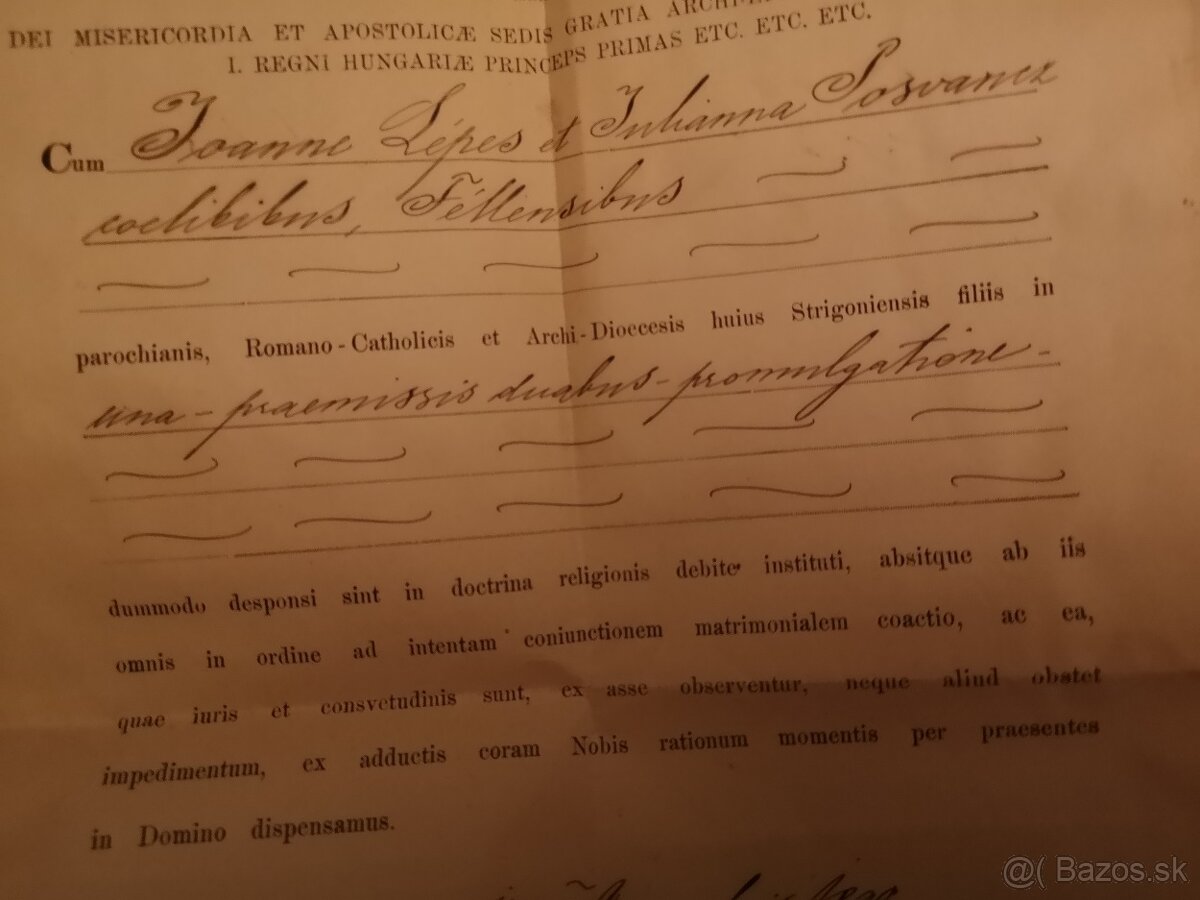 DEI MISERICORDIA ET APOSTOLICÆ SEDIS GRATIA
I. REGNI HUNGARIÆ PRINCEPS PRIMAS ETC. ETC. ETC.
Cum Joanne Lépes et Julianna Posvancz
coelibibus, Féllensibus
parochianis, Romano-Catholicis et Archi-Dioecesis huius Strigoniensis filiis in
una - praemissis duabus - promulgatione -
dummodo desponsi sint in doctrina religionis debite instituti, absitque ab iis
omnis in ordine ad intentam coniunctionem matrimonialem coactio, ac ea,
quae iuris et consvetudinis sunt, ex asse observentur, neque aliud obstet
impedimentum, ex adductis coram Nobis rationum momentis per praesentes
in Domino dispensamus.
@( Bazos.sk